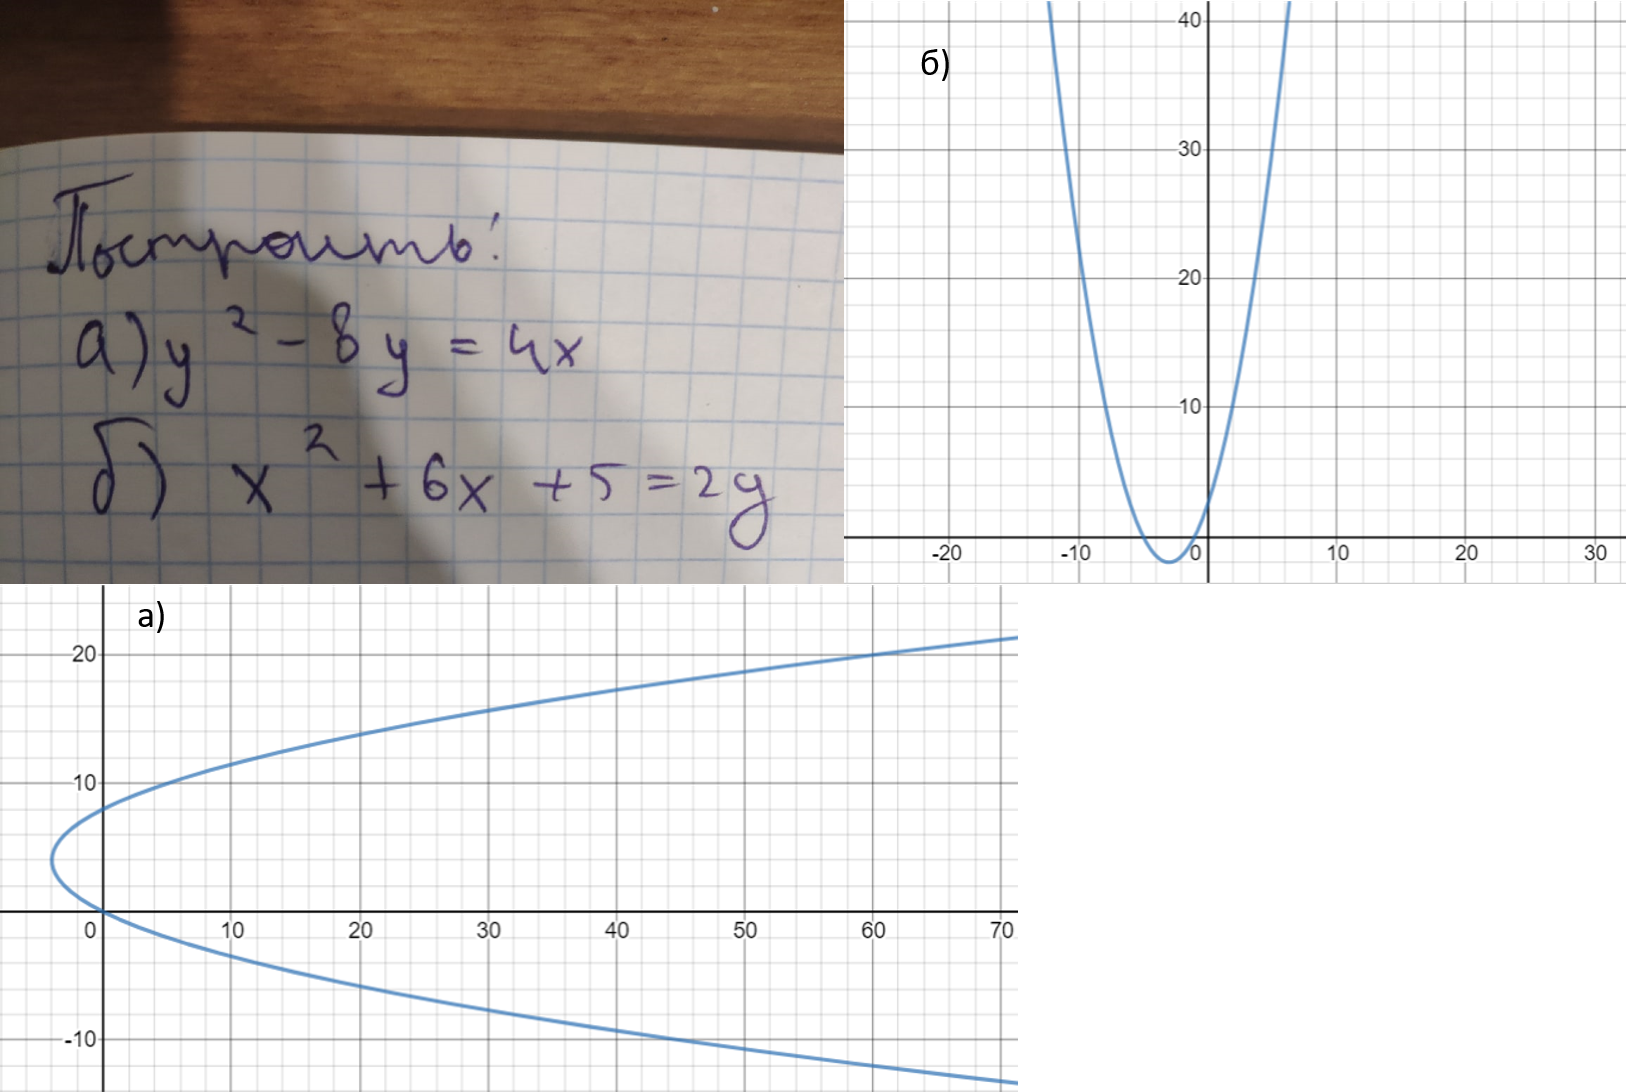 Построить:
а) y² - 8y = 4x
б) x² + 6x + 5 = 2y
б)
40
30
20
10
-20 -10 0 10 20 30
а)
20
10
0 10 20 30 40 50 60 70
-10